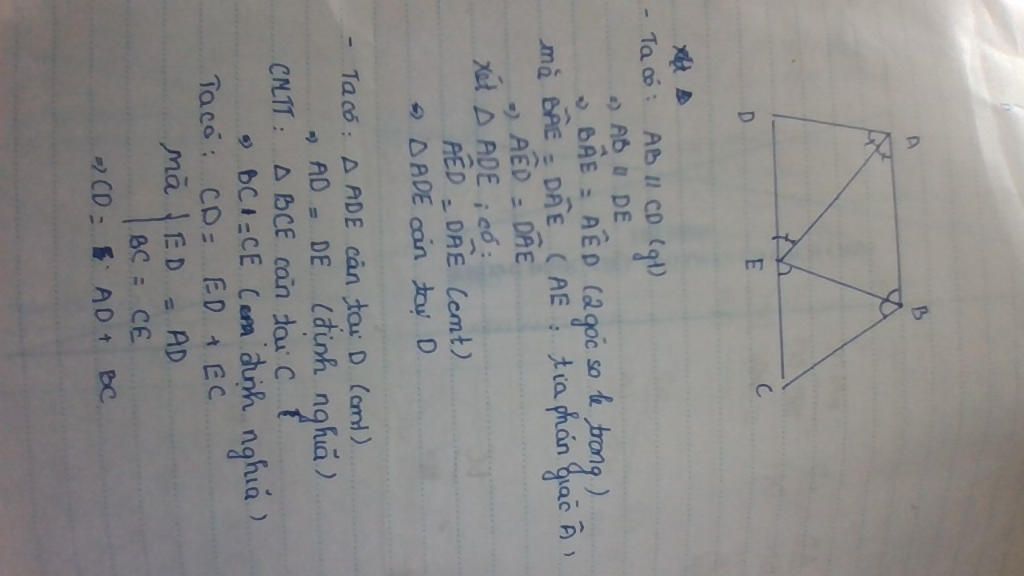 A
B
D
E
C
xét Δ
- Ta có: AB // CD (gt)
⇒ AB // DE
⇒ BÂE = AÊD (2 góc so le trong)
mà BÂE = DÂE (AE: tia phân giác Â)
⇒ AÊD = DÂE
xét Δ ADE; có:
AÊD = DÂE (cmt)
⇒ ΔADE cân tại D
- Ta có: Δ ADE cân tại D (cmt)
⇒ AD = DE (định nghĩa)
CMTT: Δ BCE cân tại C
⇒ BC = CE (định nghĩa)
Ta có: CD = ED + EC
mà ED = AD
BC = CE
⇒ CD = AD + BC